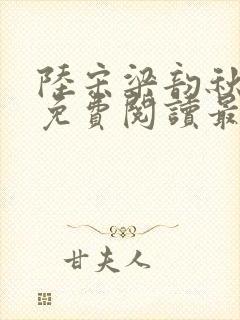 陸宗梁韵秋
免費閱讀最
甘夫人